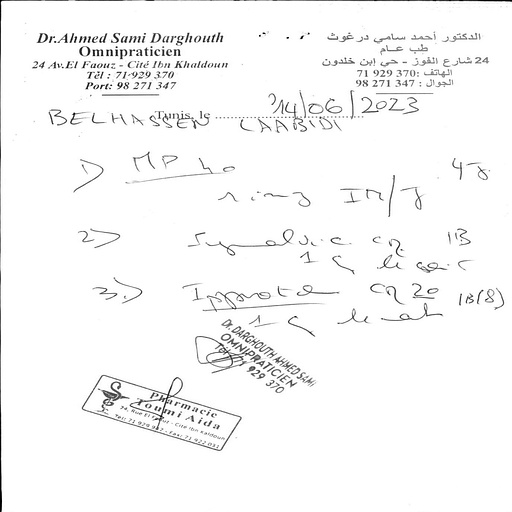 Dr.Ahmed Sami Darghouth
Omnipraticien
24 Av.El Faouz - Cité Ibn Khaldoun
Tél : 71 929 370
Port: 98 271 347
الدكتور أحمد سامي درغوث
طب عـــام
24 شارع الفوز - حي إبن خلدون
الهاتف :370 929 71
الجوال : 347 271 98
Tunis, le 14/06/2023
BELHASSEN LAABIDI
1) MP 40 4J
1 inj IM/J
2) cp 1B
1 cp le soir
3) cp 20 1B(8)
1 cp le
Dr. DARGHOUTH AHMED SAMI
OMNIPRATICIEN
Tél: 71 929 370
Pharmacie
Toumi Aida
Cité Ibn Kaldoun
Fax: 71.922.031